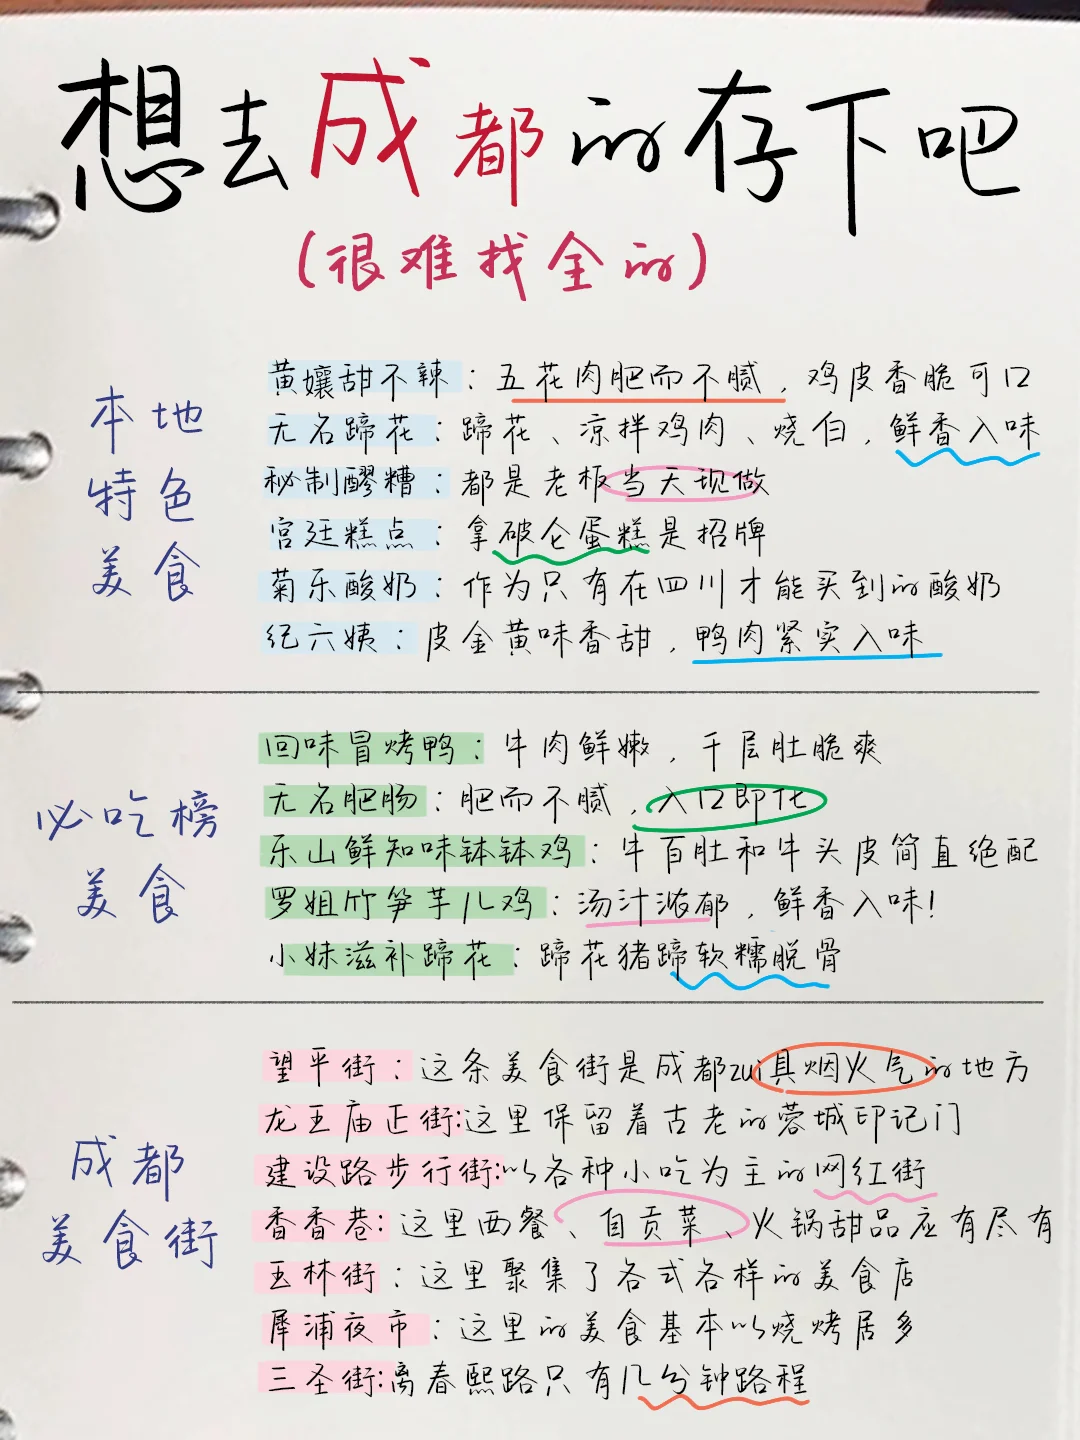 想去成都的存下吧
(很难找全的)
本地
特色
美食
黄孃甜不辣：五花肉肥而不腻，鸡皮香脆可口
无名蹄花：蹄花、凉拌鸡肉、烧白，鲜香入味
秘制醪糟：都是老板当天现做
宫廷糕点：拿破仑蛋糕是招牌
菊乐酸奶：作为只有在四川才能买到的酸奶
纪六姨：皮金黄味香甜，鸭肉紧实入味
必吃榜
美食
回味冒烤鸭：牛肉鲜嫩，千层肚脆爽
无名肥肠：肥而不腻，入口即化
乐山鲜知味钵钵鸡：牛百肚和牛头皮简直绝配
罗姐竹笋芋儿鸡：汤汁浓郁，鲜香入味！
小妹滋补蹄花：蹄花猪蹄软糯脱骨
成都
美食街
望平街：这条美食街是成都zui具烟火气的地方
龙王庙正街:这里保留着古老的蓉城印记门
建设路步行街:以各种小吃为主的网红街
香香巷:这里西餐、自贡菜、火锅甜品应有尽有
玉林街：这里聚集了各式各样的美食店
犀浦夜市：这里的美食基本以烧烤居多
三圣街:离春熙路只有几分钟路程